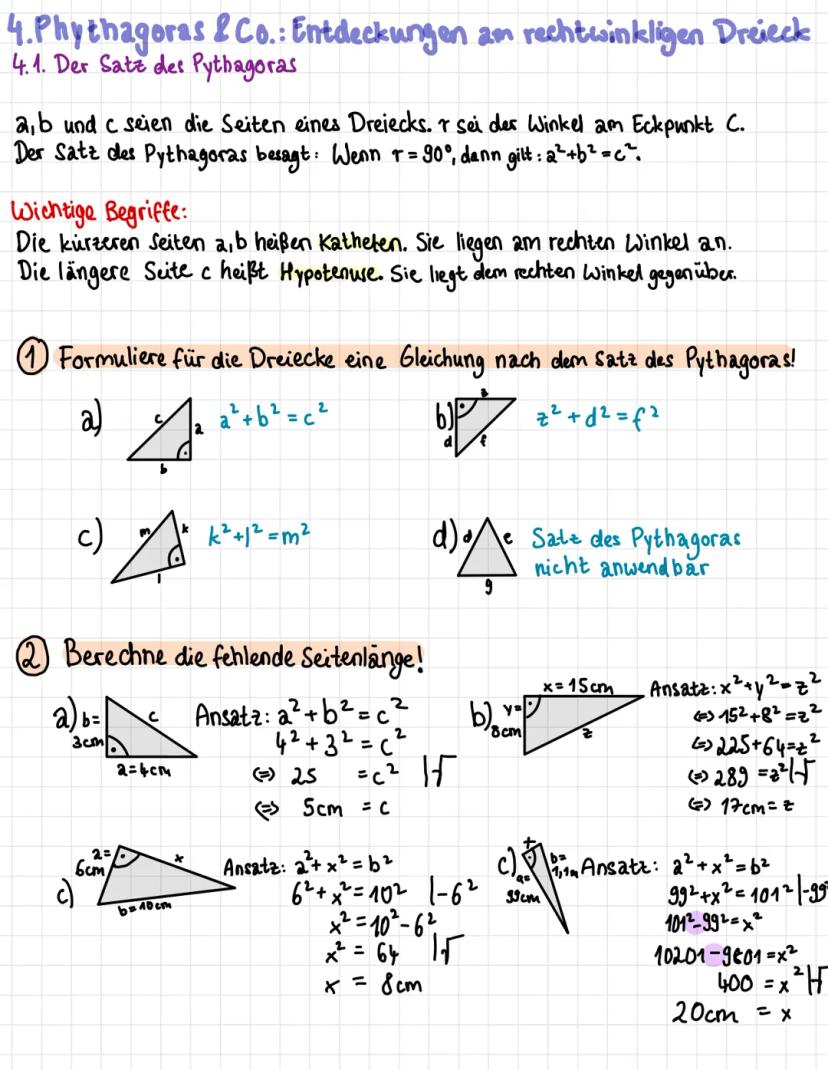 4. Phythagoras & Co.: Entdeckungen am rechtwinkligen Dreieck
4.1. Der Satz des Pythagoras
a,b und c seien die Seiten eines Dreiecks. r sei der Winkel am Eckpunkt C.
Der Satz des Pythagoras besagt: Wenn r = 90°, dann gilt: a²+b²=c².
Wichtige Begriffe:
Die kürzeren Seiten a,b heißen Katheten. Sie liegen am rechten Winkel an.
Die längere Seite c heißt Hypotenuse. Sie liegt dem rechten Winkel gegenüber.
① Formuliere für die Dreiecke eine Gleichung nach dem Satz des Pythagoras!
a) c a b a² + b² = c²
b) d f z² + d² = f²
c) m k l k² + l² = m²
d) d e g Satz des Pythagoras
nicht anwendbar
② Berechne die fehlende Seitenlänge!
a) b= 3cm c a=4cm
Ansatz: a² + b² = c²
4² + 3² = c²
⇔ 25 = c² |√
⇔ 5cm = c
b) x = 15cm y= 8cm z
Ansatz: x² + y² = z²
⇔ 15² + 8² = z²
⇔ 225 + 64 = z²
⇔ 289 = z² |√
⇔ 17cm = z
c) a= 6cm x b=10cm
Ansatz: a² + x² = b²
6² + x² = 10² |-6²
x² = 10² - 6²
x² = 64 |√
x = 8cm
c) x a= 99cm b= 1,1m
Ansatz: a² + x² = b²
99² + x² = 101² |-99²
101² - 99² = x²
10201 - 9801 = x²
400 = x² |√
20cm = x